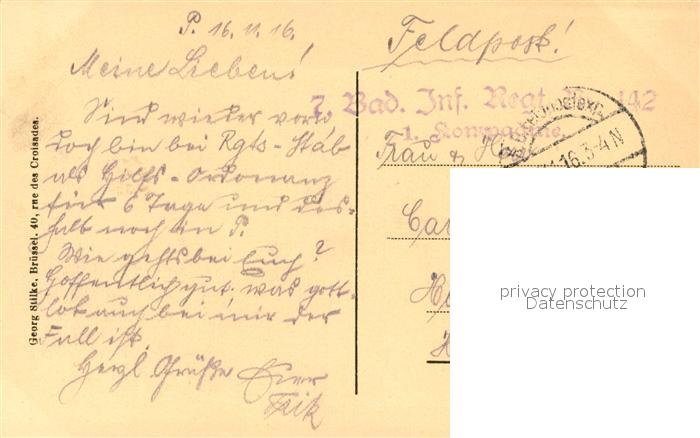 P. 16. 11. 16.
Meine Lieben!
Sind wieder vorn
doch bin bei Rgts-Stab
als Hilfs-Ordonanz
für 6 Tage und des-
halb noch in P.
Wie gehts bei Euch?
Hoffentlich gut. was gott-
lob auch bei mir der
Fall ist.
Herzl. Grüße Euer
Georg Stilke, Brüssel. 40, rue des Croisades.
Feldpost!
7. Bad. Inf. Regt. 142
1. Kompagnie.
16.3-4N
Frau &
privacy protection
Datenschutz